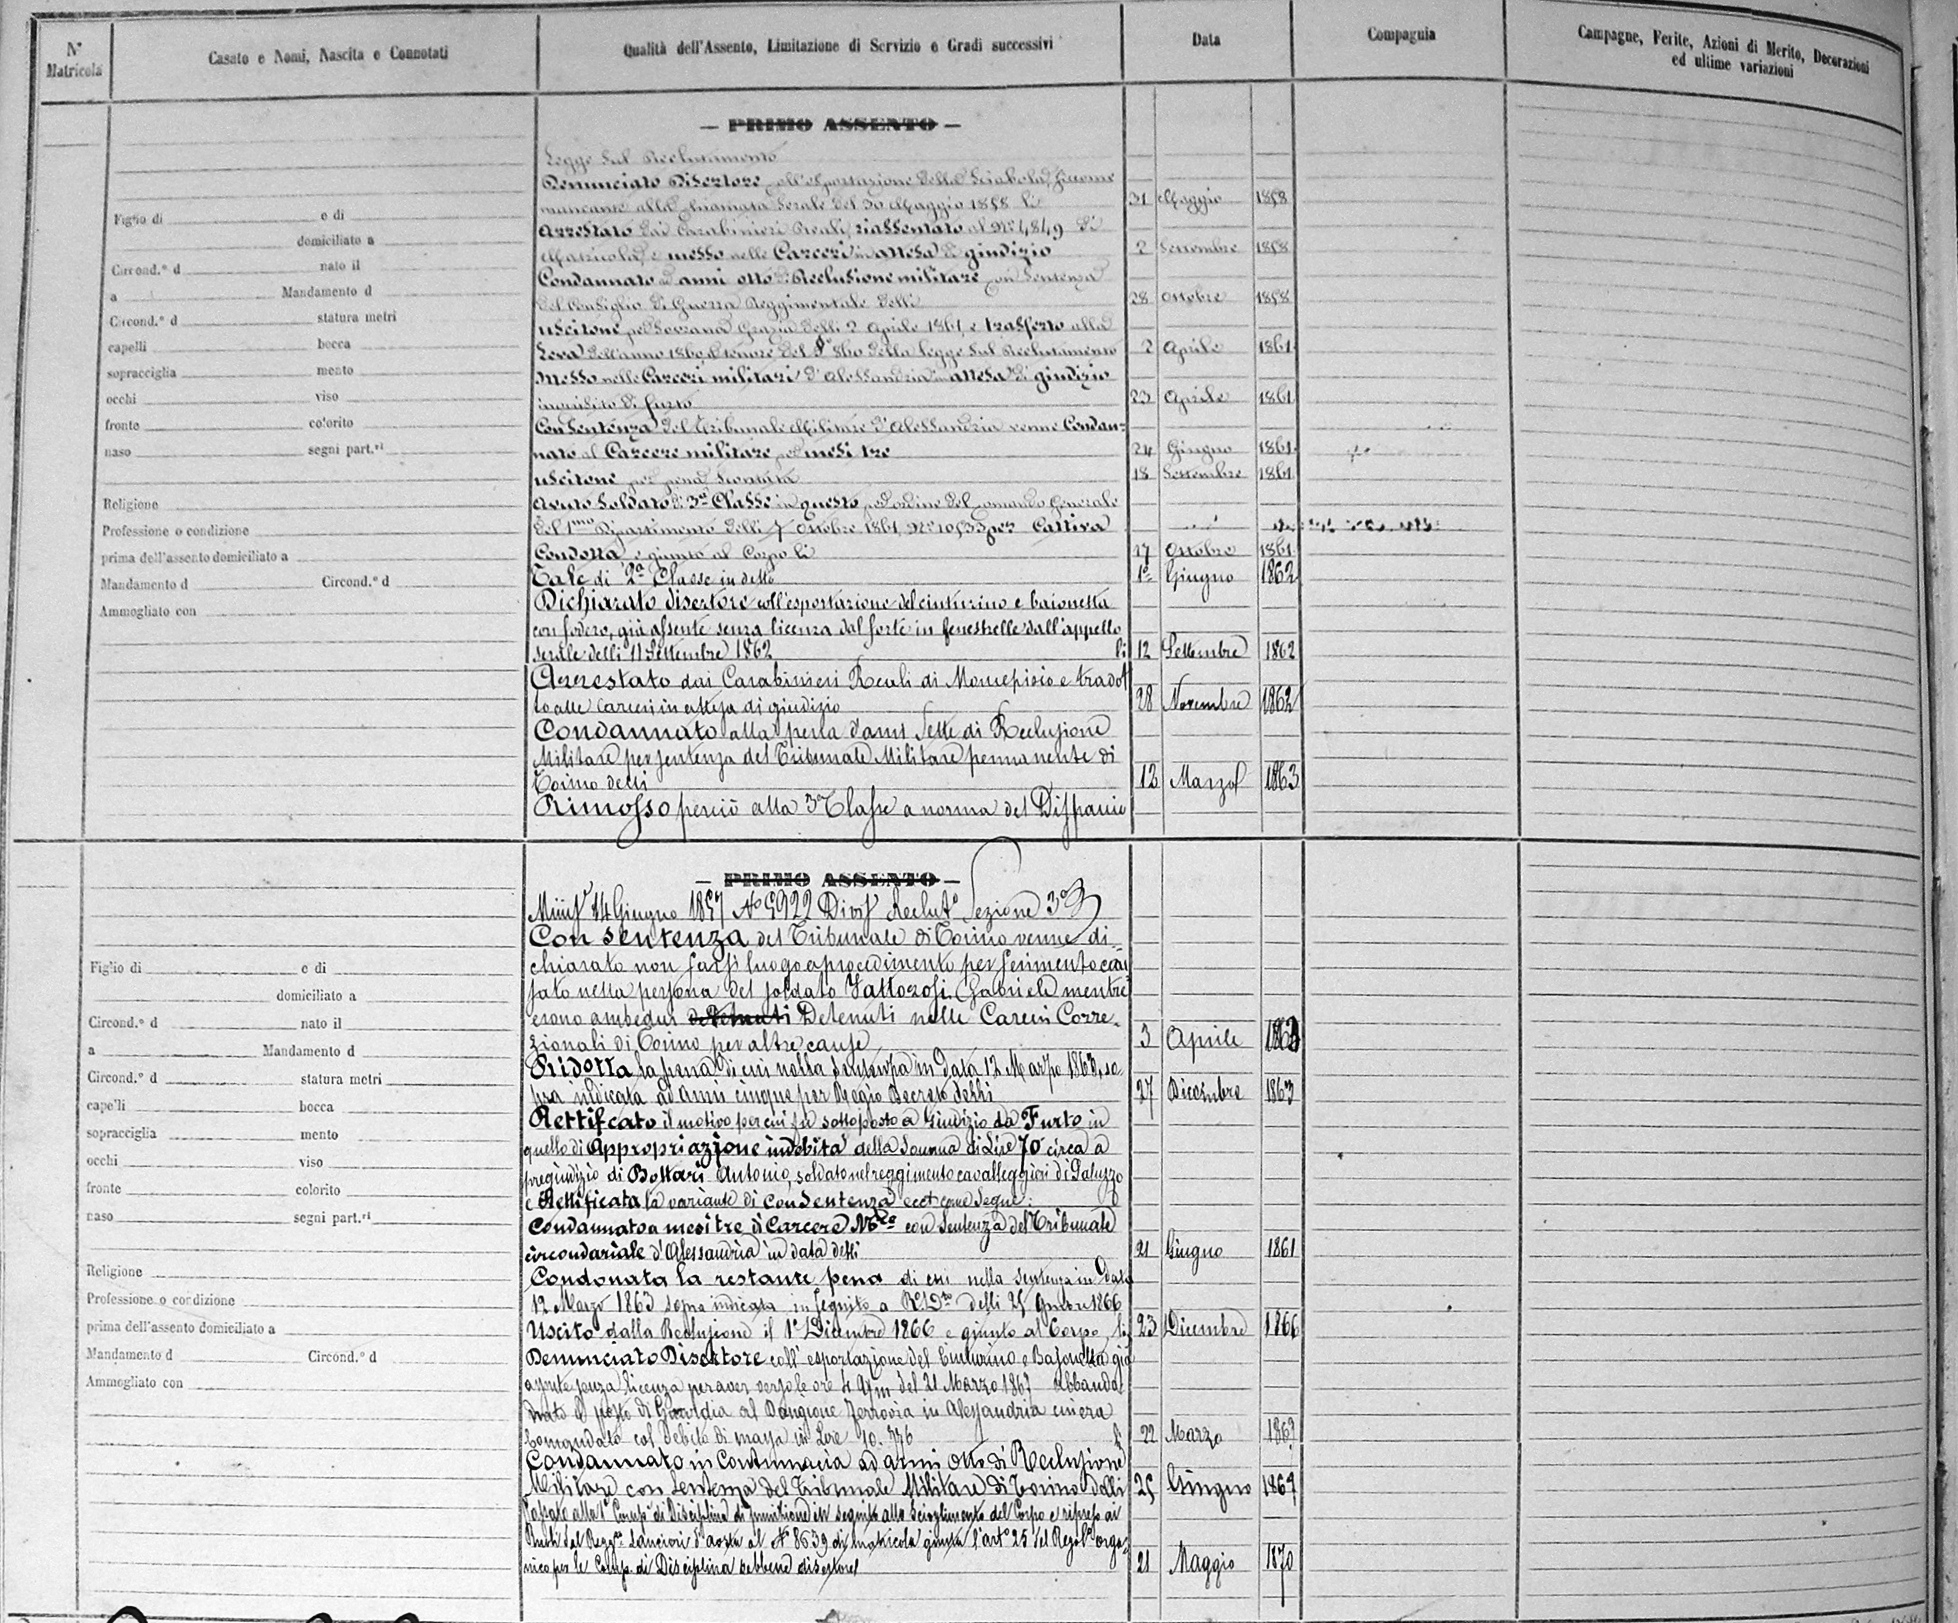 N° Matricola
Casato e Nomi, Nascita e Connotati
Qualità dell'Assento, Limitazione di Servizio e Gradi successivi
Data
Compagnia
Campagne, Ferite, Azioni di Merito, Decorazioni
ed ultime variazioni
— PRIMO ASSENTO —
Legge sul Reclutamento
Denunciato Disertore coll'esportazione della Sciabola, siccome
mancante alla chiamata serale del 30 Maggio 1858 li 31 Maggio 1858
Arrestato dai Carabinieri Reali, riassentato al N° 4849 di
Matricola, e messo nelle Carceri in attesa di giudizio 2 Settembre 1858
Condannato ad anni otto di Reclusione militare con Sentenza
del Consiglio di Guerra Reggimentale delli 28 Ottobre 1858
uscitone per Sovrana Grazia delli 2 Aprile 1861, e trasferto alla
Leva dell'anno 1860, a tenore del § 860 della legge sul Reclutamento 2 Aprile 1861
Messo nelle Carceri militari d'Alessandria in attesa di giudizio
inquisito di furto 23 Aprile 1861
Con Sentenza del Tribunale Militare d'Alessandria venne Condan-
nato al Carcere militare per mesi tre 24 Giugno 1861
uscitone per pena scontata 18 Settembre 1861
Avuto Soldato di 3a Classe in questo, per ordine del Comando Generale
del 1mo Dipartimento delli 7 Ottobre 1861, N° 10533 per Cattiva
Condotta, e giunto al Corpo li 17 Ottobre 1861
Tale di 2a Classe in detto 1° Giugno 1862
Dichiarato disertore coll'esportazione del cinturino e baionetta
con fodero, già assente senza licenza dal forte in fenestrelle dall'appello
serale delli 11 Settembre 1862 li 12 Settembre 1862
Arrestato dai Carabinieri Reali di e tradot
to alle Carceri in attesa di giudizio 28 Novembre 1862
Condannato alla pena d'anni Sette di Reclusione
Militare per sentenza del Tribunale Militare permanente di
Torino delli 12 Marzo 1863
Rimosso perciò alla 3a Classe a norma del Dispaccio
Figlio di e di
domiciliato a
Circond.° d nato il
a Mandamento d
Circond.° d statura metri
capelli bocca
sopracciglia mento
occhi viso
fronte colorito
naso segni part.ri
Religione
Professione o condizione
prima dell'assento domiciliato a
Mandamento d Circond.° d
Ammogliato con
— PRIMO ASSENTO —
14 Giugno 1857 N° 5922 Sezione 3a
Con sentenza del Tribunale di Torino venne di-
chiarato non farsi luogo a procedimento per ferimento cau
sato nella persona del soldato Gabriele mentre
erono ambedui detenuti Detenuti nelle Carceri Corre-
zionali di Torino per altre cause 3 Aprile 1863
Ridotta la pena di cui nella Sentenza in data 12 Marzo 1863, so-
pra indicata ad anni cinque per Regio Decreto delli 27 Dicembre 1863
Rettificato il motivo per cui fu sottoposto a Giudizio da Furto in
quello di Appropriazione indebita della Somma di Lire 70 circa a
pregiudizio di Bottari Antonio, soldato nel reggimento cavalleggieri di Saluzzo
e Rettificata la variante di Con Sentenza ecct come segue:
Condannato a mesi tre di Carcere con sentenza del Tribunale
circondariale d'Alessandria in data delli 21 Giugno 1861
Condonata la restante pena di cui nella sentenza in Data
12 Marzo 1863 sopra indicata in seguito a delli 25 1866
Uscito dalla Reclusione il 1° Dicembre 1866 e giunto al Corpo li 23 Dicembre 1866
Denunciato Disertore coll'esportazione del Cinturino e Bajonetta già
assente senza licenza per aver verso le ore 4 del 21 Marzo 1867 abbando
nato il posto di Guardia al Ferrovia in Alessandria cui era
Comandato col Debito di massa in Lire li 22 Marzo 1867
Condannato in Contumacia ad anni Otto di Reclusione
Militare con Sentenza del Tribunale Militare di Torino delli 25 Giugno 1867
Passato alla 1a Comp.a di Disciplina di punizione in seguito allo scioglimento del Corpo e ripreso ai
Ruoli del Lancieri d'Aosta al N° 8639 di matricola giusta l'art° 25 del Regol.° orga-
nico per le Comp. di Disciplina sebbene disertore 21 Maggio 1870
Figlio di e di
domiciliato a
Circond.° d nato il
a Mandamento d
Circond.° d statura metri
capelli bocca
sopracciglia mento
occhi viso
fronte colorito
naso segni part.ri
Religione
Professione o condizione
prima dell'assento domiciliato a
Mandamento d Circond.° d
Ammogliato con